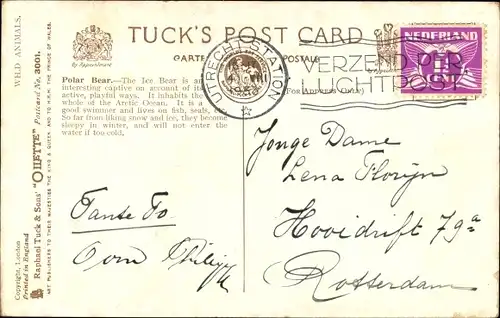 TUCK'S POST CARD
CARTE POSTALE
By Appointment
(For Address Only)
NEDERLAND
UTRECHT-STATION
VERZEND PER
LUCHTPOST
Polar Bear.—The Ice Bear is an
interesting captive on account of its
active, playful ways. It inhabits the
whole of the Arctic Ocean. It is a
good swimmer and lives on fish, seals, &c.
So far from liking snow and ice, they become
sleepy in winter, and will not enter the
water if too cold.
WILD ANIMALS.
Postcard No. 3001.
Raphael Tuck & Sons' "OILETTE"
ART PUBLISHERS TO THEIR MAJESTIES THE KING & QUEEN, AND TO H.R.H. THE PRINCE OF WALES.
Copyright, London
Printed in England
Tante To
Oom Philip
Jonge Dame
Lena Florijn
Hooidrift 79a
Rotterdam